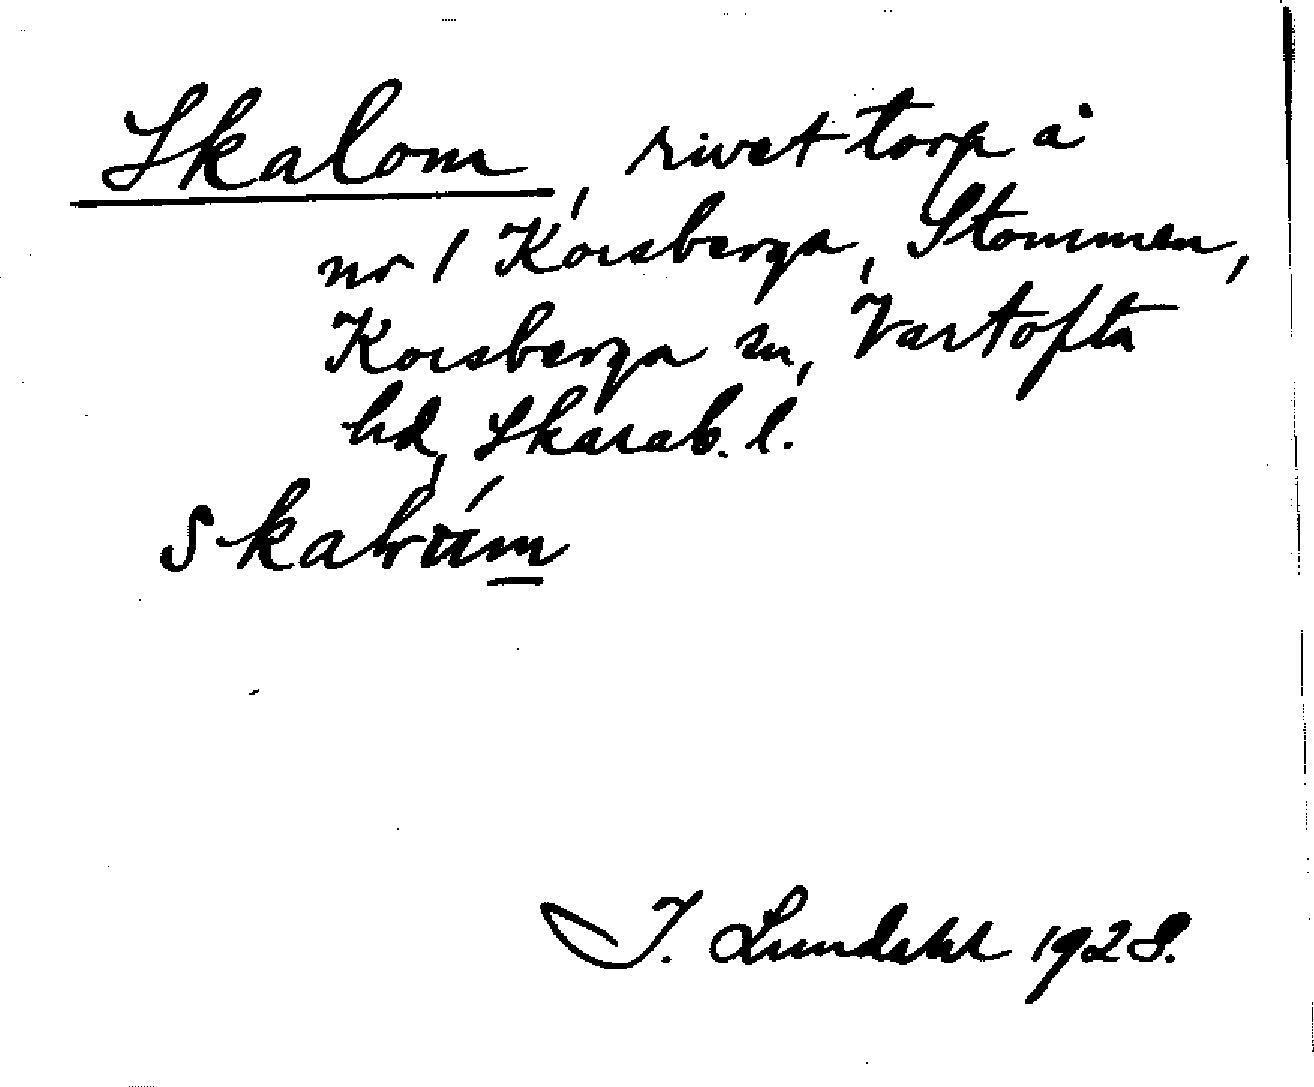 Skalom, rivet torp å
nr 1 Korsberga, Stommen,
Korsberga sn, Vartofta
hd, Skarab. l.
I. Lundahl 1928.